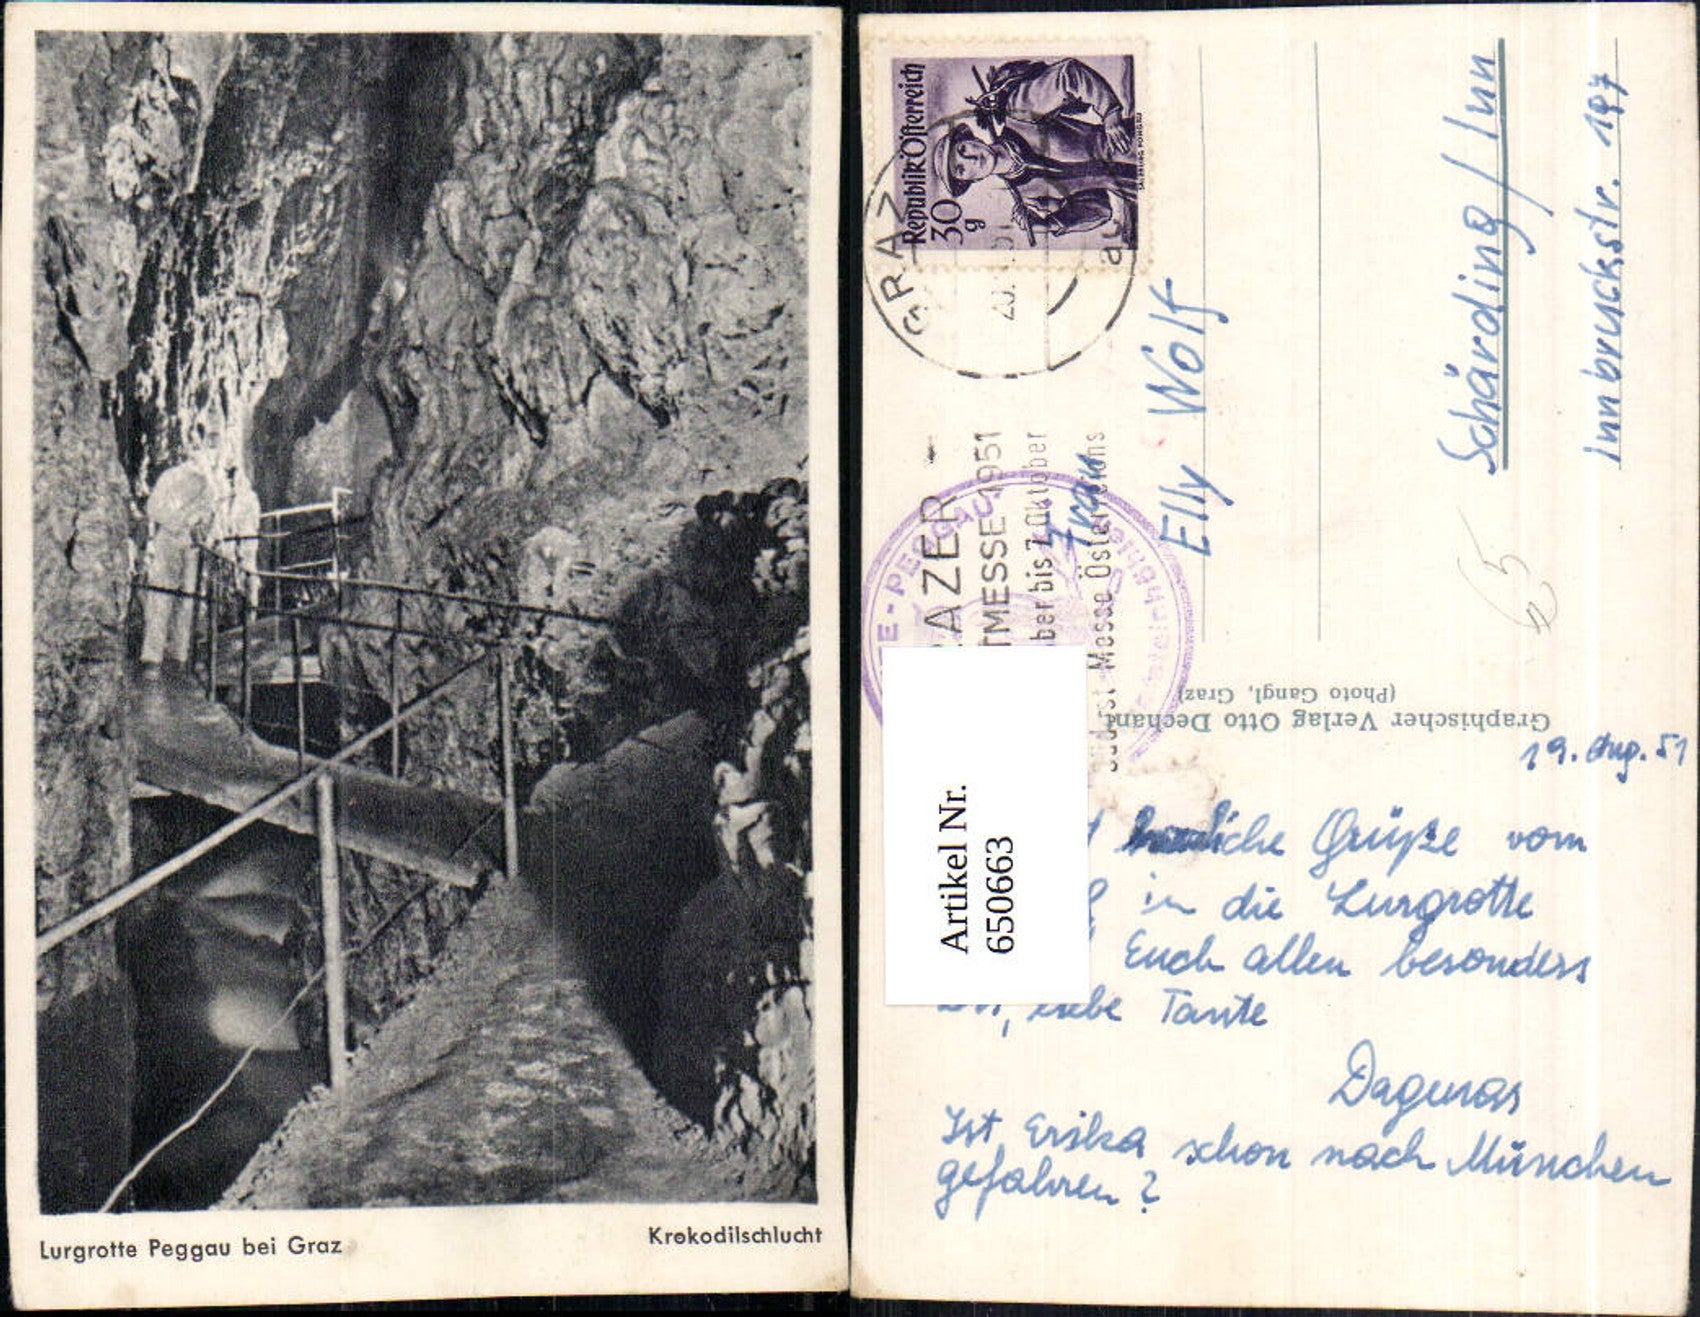 Lurgrotte Peggau bei Graz
Krokodilschlucht
Republik Österreich
30 g
SALZBURG PONGAU
GRAZ
20.
MESSE 1951
ber bis 7 Oktober
Messe Österreichs
PEGGAU
Frau
Elly Wolf
Schärding / Inn
Innbruckstr. 197
65
Graphischer Verlag Otto Dechant
(Photo Gangl, Graz)
Artikel Nr.
650663
19. Aug. 51
Grüße vom
in die Lurgrotte
Euch allen besonders
liebe Tante
Dagmar
Ist Erika schon nach München
gefahren?